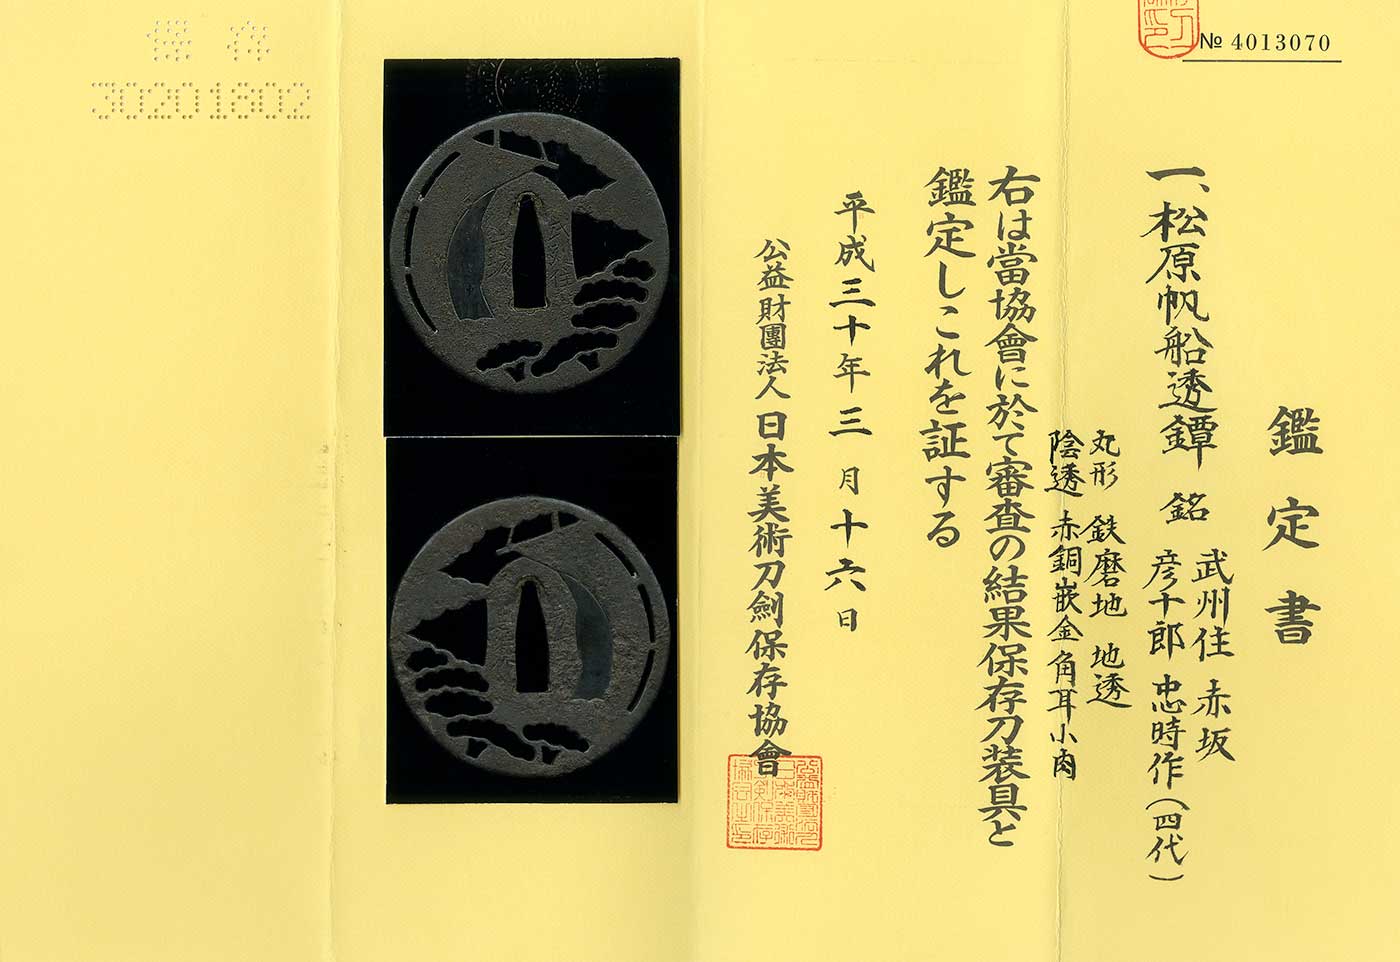 № 4013070
鑑定書
一、松原帆船透鐔 銘 武州住 赤坂
彦十郎 忠時作(四代)
丸形 鉄磨地 地透
陰透 赤銅嵌金 角耳小肉
右は當協會に於て審査の結果保存刀装具と
鑑定しこれを証する
平成三十年三月十六日
公益財團法人 日本美術刀劍保存協會
保存
30201602